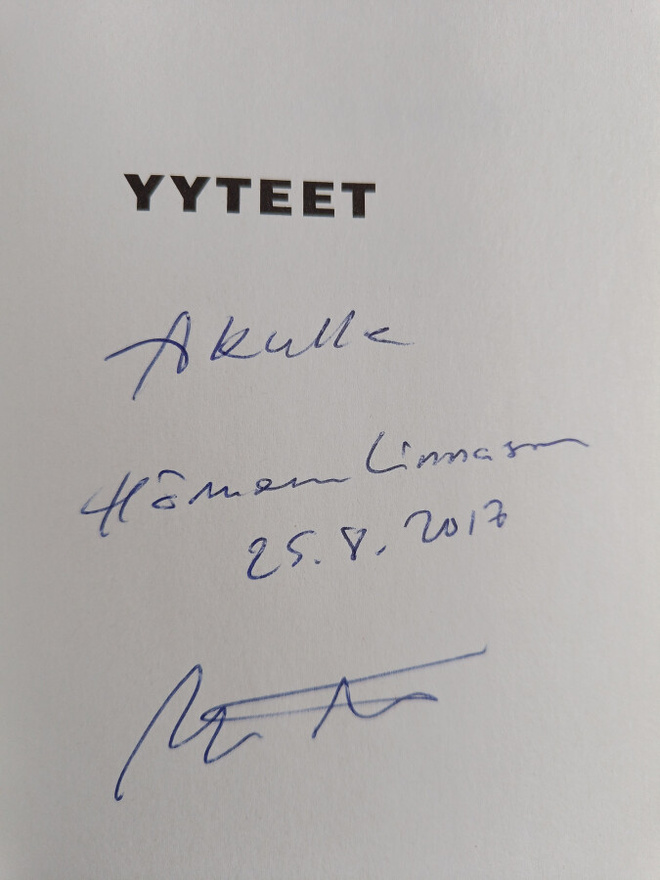 YYTEET
Akulle
Hämeen Linnassa
25.8.2017